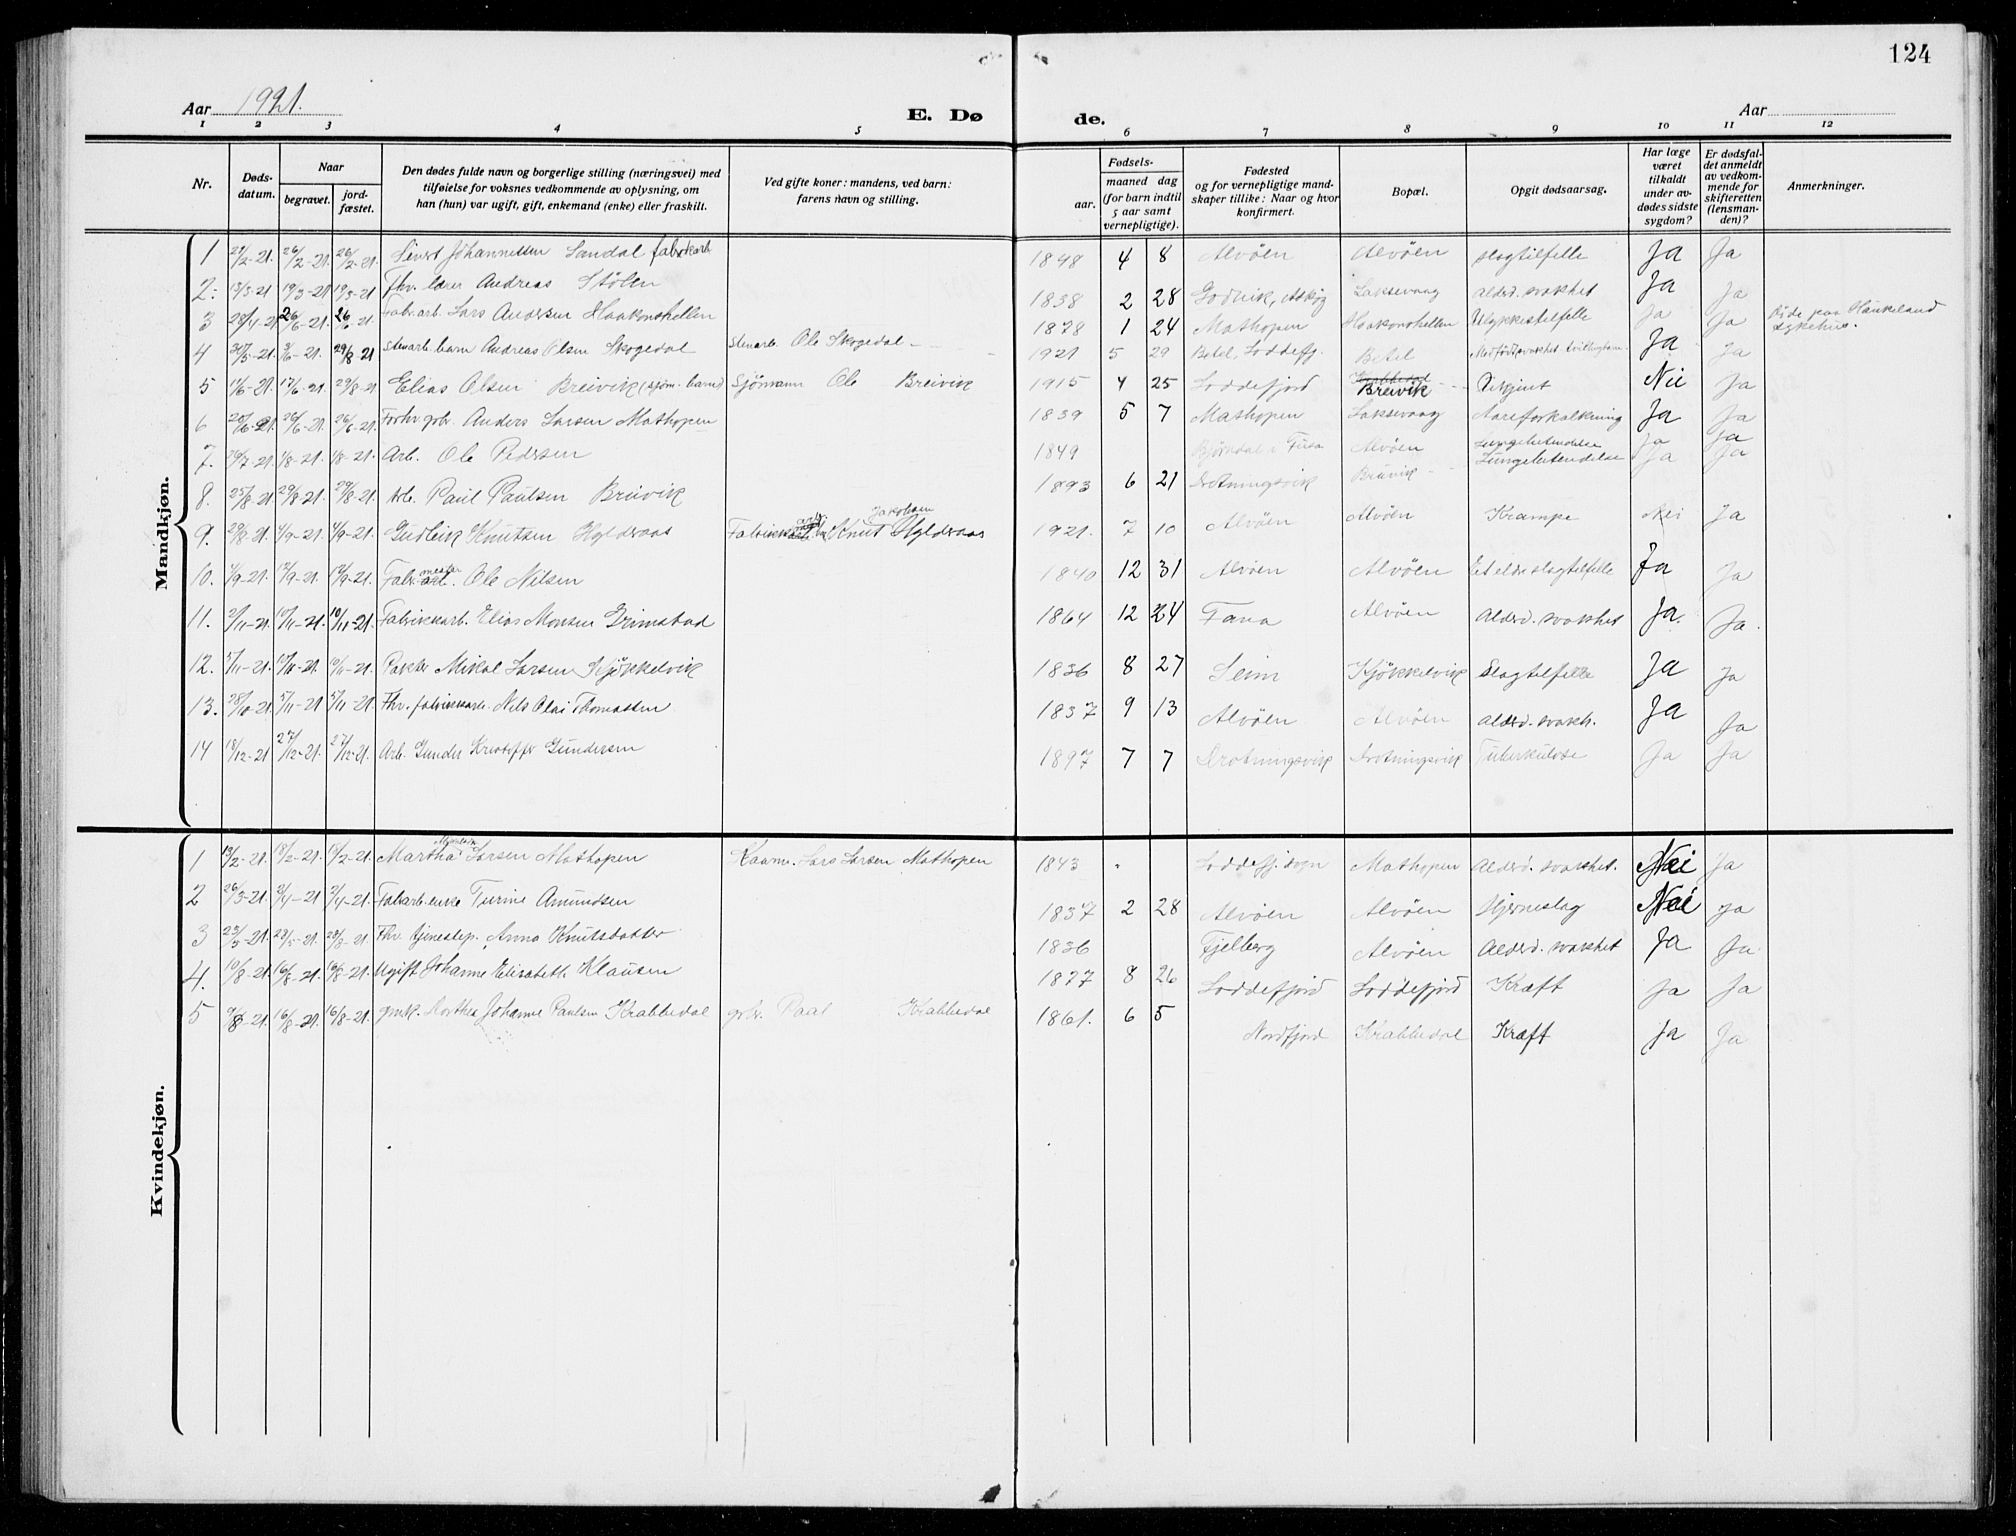 124
Aar 1921. E. Dø de. Aar
1 2 3 4 5 6 7 8 9 10 11 12
Nr. Dødsdatum. Naar begravet. jordfæstet. Den dødes fulde navn og borgerlige stilling (næringsvei) med tilføielse for voksnes vedkommende av oplysning, om han (hun) var ugift, gift, enkemand (enke) eller fraskilt. Ved gifte koner: mandens, ved barn: farens navn og stilling. Fødsels- aar. maaned dag (for barn indtil 5 aar samt vernepligtige). Fødested og for vernepligtige mandskaper tillike: Naar og hvor konfirmert. Bopæl. Opgit dødsaarsag. Har læge været tilkaldt under avdødes sidste sygdom? Er dødsfaldet anmeldt av vedkommende for skifteretten (lensmanden)? Anmerkninger.
Mandkjøn.
1 26/2-21. 26/2-21. Sivert Johannessen Sandal fabrikarb 1848 4 8 Alvöen Alvöen slagtilfelle Ja Ja
2. 13/3-21 19/3-21 19/3-21 Fhv. lærer Andreas Stölen 1838 2 28 Godvik, Askøy Laksevaag alderd. svakhet Ja Ja
3 28/4-21 26/6-21. 26/6-21 Fabr.arb. Lars Andersen Haakonshellen 1878 1 24 Mathopen Haakonshellen Ulykkestilfelle Ja Ja Döde paa Haukeland sykehus.
4 30/5-21. 9/6-21. 29/8 21 Stenarb. barn Andreas Olsen Skogedal Stenarb. Ole Skogedal 1921 5 29 Betel, Loddefj. Betel Medfödt svakhet tvillingbarn Ja Ja
5 11/6-21. 17/6-21. 29/8-21 Elias Olsen Breivik (sjøm. barn) Sjömann Ole Breivik 1915 4 25 Loddefjord Breivik Nei Ja
6 20/6-21 26/6-21. 26/6-21. Forhv. gbr. Anders Larsen Mathopen 1839 5 7 Mathopen Laksevaag Aareforkalkning Ja Ja
7. 29/7-21 1/8-21. 1/8-21. Arb. Ole Pedersen 1849 Björndal i Fusa Alvöen Lungebetendelse Ja Ja
8. 25/8-21 29/8-21. 29/8-21. Arb. Paul Paulsen Breivik 1893 6 21 Drotningsvik Breivik Lungebetendelse Ja Ja
9. 29/8-21. 4/9-21. 4/9-21. Gudleik Knutsen Hylderaas Fabrikkarb. Knut Jakobsen Hylderaas 1921. 7 10 Alvöen Alvöen Krampe Nei Ja
10. 4/9-21. 12/9-21. 12/9-21. Fabr.mester Ole Nilsen 1840 12 31 Alvöen Alvöen Et eldre slagtilfelle Ja Ja
11. 2/11-21. 10/11-21. 10/11-21. Fabrikkarb. Elias Monsen Grimstad 1864 12 24 Fana Alvöen Alderd. svakhet Ja. Ja.
12. 5/11-21. Mikal Larsen Kjøkkelvik 1836 8 27 Seim Kjökkelvik Slagtilfelle Ja Ja
13. 28/10-21. 5/11-21 5/11-21. Fhv. fabrikkarb. Nils Olai Thomassen 1837 9 13 Alvöen Alvöen Alderd. svakh. Ja Ja
14 18/12-21 27/12-21. 27/12-21. Arb. Gunder Kristoffer Gundersen 1897 7 7 Drotningsvik Drotningsvik Tuberkulose Ja Ja
Kvindekjøn.
1 13/2-21. 18/2-21. 18/2-21. Martha Larsen Mathopen Kaarm. Lars Larsen Mathopen 1843 " Loddefj. sogn Mathopen Alderd. svakhet. Nei Ja
2 26/3-21. 2/4-21 2/4-21. Fabrarb.enke Turine Amundsen 1837 2 28 Alvöen Alvöen Hjerneslag Nei Ja
3 23/5-21. 28/5-21. 28/8-21. Fhv. tjenestep. Anna Knutsdatter 1836 Fjelberg Alvöen Alderd. svakhet Ja Ja
4. 10/8-21. 16/8-21. 16/8-21. Ugift Johanne Elisabeth Klausen 1877 8 26 Loddefjord Loddefjord Kræft Ja Ja
5 9/8-21. 16/8-21. 16/8-21. gmk. Marthea Johanne Paulsen Krabbedal gbr. Paal Krabbedal 1861. 6 5 Nordfjord Krabbedal Kræft Ja Ja